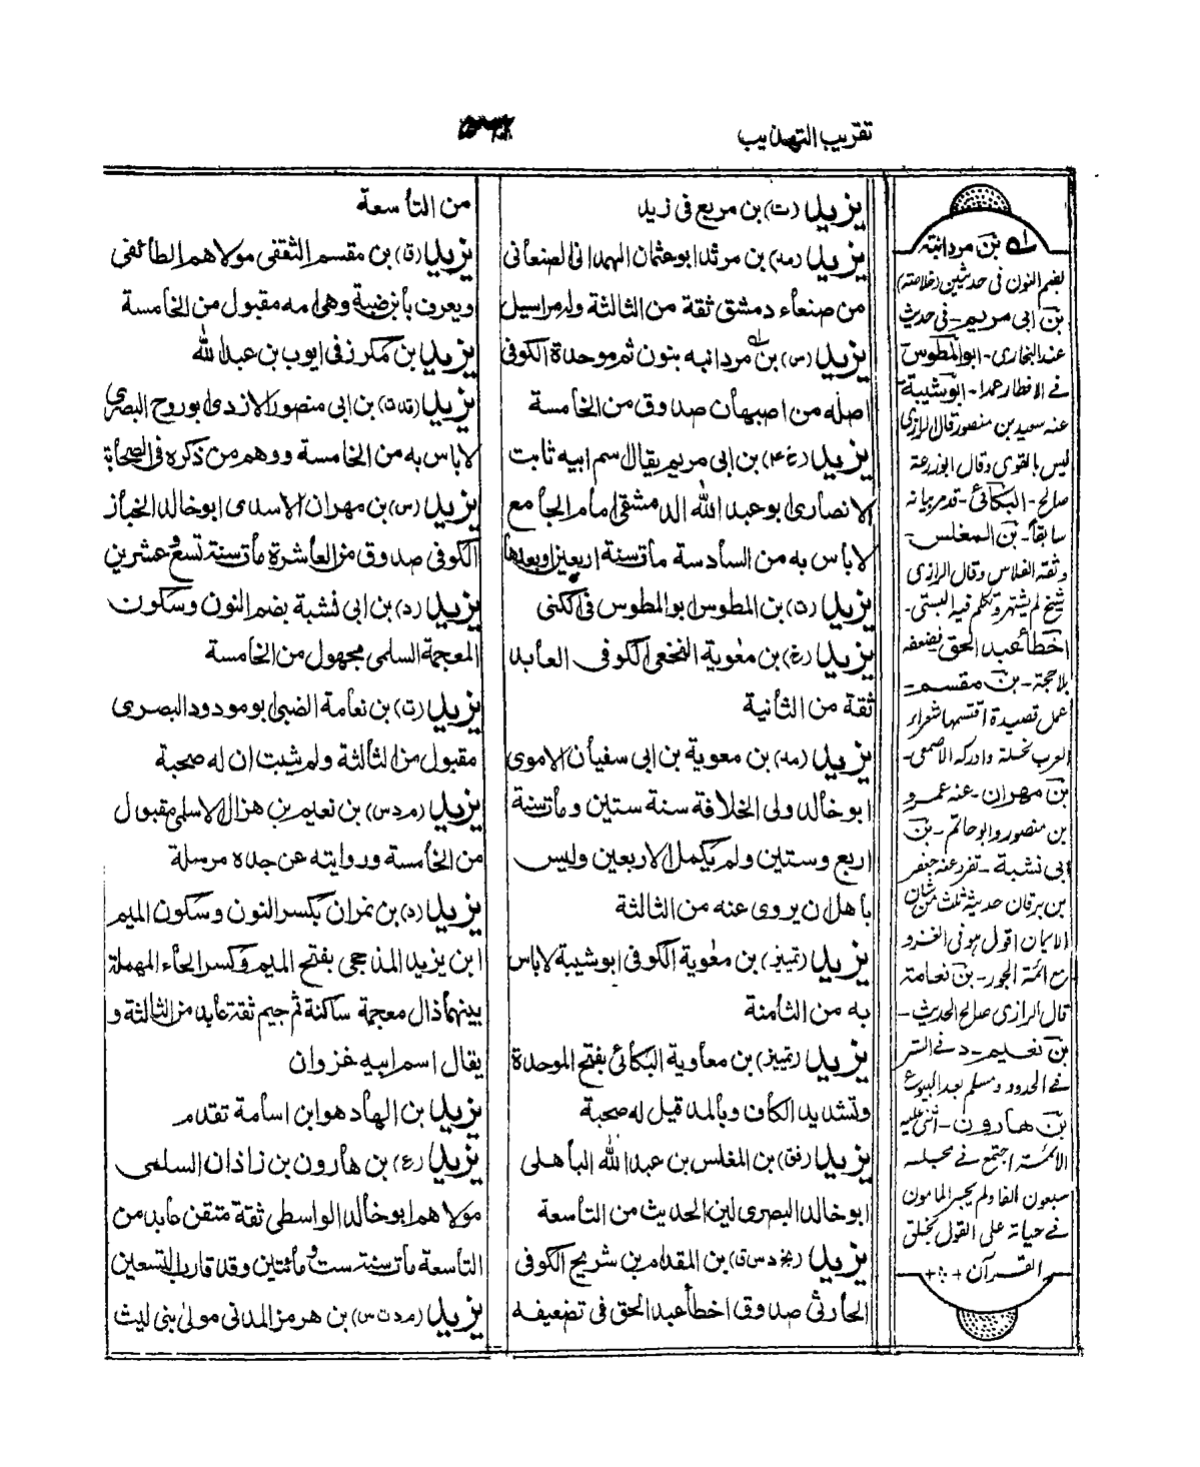 تقريب التهذيب
يزيد (ت) بن مربع فى زيد
يزيد (مد) بن مرثد ابو عثمان الهمدانى الصنعانى
من صنعاء دمشق ثقة من الثالثة وله مراسيل
يزيد (س) بن مردانبه بنون ثم موحدة الكوفى
اصله من اصبهان صدوق من الخامسة
يزيد (خ ٤) بن ابى مريم يقال اسم ابيه ثابت
الانصارى ابو عبد الله الدمشقى امام الجامع
لا باس به من السادسة مات سنة اربعين او بعدها
يزيد (ت) بن المطوس ابو المطوس فى الكنى
يزيد (غ) بن معوية النخعى الكوفى العابد
ثقة من الثانية
يزيد (مد) بن معوية بن ابى سفيان الاموى
ابو خالد ولى الخلافة سنة ستين ومات سنة
اربع وستين ولم يكمل الاربعين وليس
باهل ان يروى عنه من الثالثة
يزيد (تمييز) بن معوية الكوفى ابو شيبة لا باس
به من الثامنة
يزيد (تمييز) بن معاوية البكائى بفتح الموحدة
وتشديد الكاف وبالمد قيل له صحبة
يزيد (فق) بن المغلس بن عبد الله الباهلى
ابو خالد البصرى لين الحديث من التاسعة
يزيد (بخ د س ق) بن المقدام بن شريح الكوفى
الحارثى صدوق اخطأ عبد الحق فى تضعيفه
من التاسعة
يزيد (ق) بن مقسم الثقفى مولاهم الطائفى
ويعرف بابن ضبة وهى امه مقبول من الخامسة
يزيد بن مكرز فى ايوب بن عبد الله
يزيد (قد ت) بن ابى منصور الازدى ابو روح البصرى
لا باس به من الخامسة ووهم من ذكره فى الصحابة
يزيد (س) بن مهران الاسدى ابو خالد الخباز
الكوفى صدوق من العاشرة مات سنة تسع وعشرين
يزيد (د) بن ابى نشبة بضم النون وسكون
المعجمة السلمى مجهول من الخامسة
يزيد (ت) بن نعامة الضبى ابو مودود البصرى
مقبول من الثالثة ولم يثبت ان له صحبة
يزيد (م د س) بن نعيم بن هزال الاسلمى مقبول
من الخامسة وروايته عن جده مرسلة
يزيد (د) بن نمران بكسر النون وسكون الميم
ابن يزيد المذحجى بفتح الميم وكسر الحاء المهملة
بينهما ذال معجمة ساكنة ثم جيم ثقة عابد من الثالثة و
يقال اسم ابيه غزوان
يزيد بن الهاد هو ابن اسامة تقدم
يزيد (ع) بن هارون بن زاذان السلمى
مولاهم ابو خالد الواسطى ثقة متقن عابد من
التاسعة مات سنة ست ومائتين وقد قارب التسعين
يزيد (م د ت س) بن هرمز المدنى مولى بنى ليث
له بن مردانبة
بضم النون فى حديثين (خلاصة)
بن ابى مريم - فى حديث
عند البخارى - ابو المطوس
فى الافطار عمدا - ابو شيبة -
عنه سعيد بن منصور قال الرازى
ليس بالقوى وقال ابو زرعة
صالح - البكائى - قد مر بيانه
سابقا - بن المغلس -
وثقه الفلاس وقال الرازى
شيخ لم يشتهر وتكلم فيه البستى -
اخطأ عبد الحق فضعفه
بلا حجة - بن مقسم -
عمل قصيدة اقتسمها شعراء
العرب وادركه الاصمعى -
بن مهران - عنه عمرو
بن منصور وابو حاتم - بن
ابى نشبة - تفرد عنه جعفر
بن برقان حديثه ثلث من
الايمان اقول هو فى الغزو
مع ائمة الجور - بن نعامة
قال الرازى صالح الحديث -
بن نعيم - د فى الستر
فى الحدود ومسلم بعد البيوع
بن هارون - اثنى عليه
الائمة اجتمع فى مجلسه
سبعون الفا ولم يجسر المامون
فى حياته على القول بخلق
القرآن